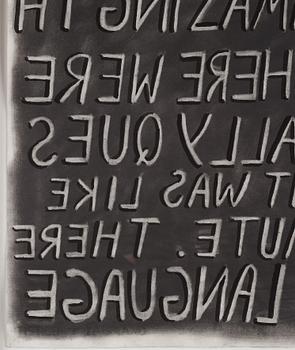 MAZING TH
HERE WERE
ALLY QUES
T WAS LIKE
UTE. THERE
LANGUAGE